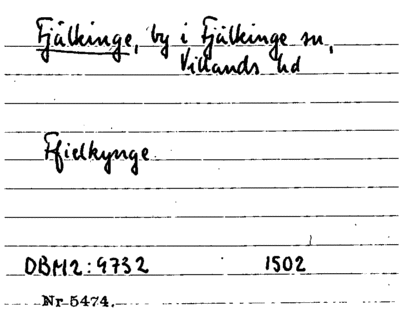 Fjälkinge, by i Fjälkinge sn,
Villands hd
Ffielkynge
DBM2:9732 1502
Nr 5474.